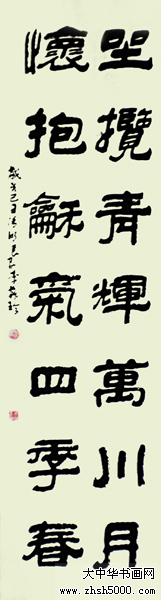 坐攬青輝萬川月
懷抱龢氣四季春
大中华书画网
www.zhsh5000.com